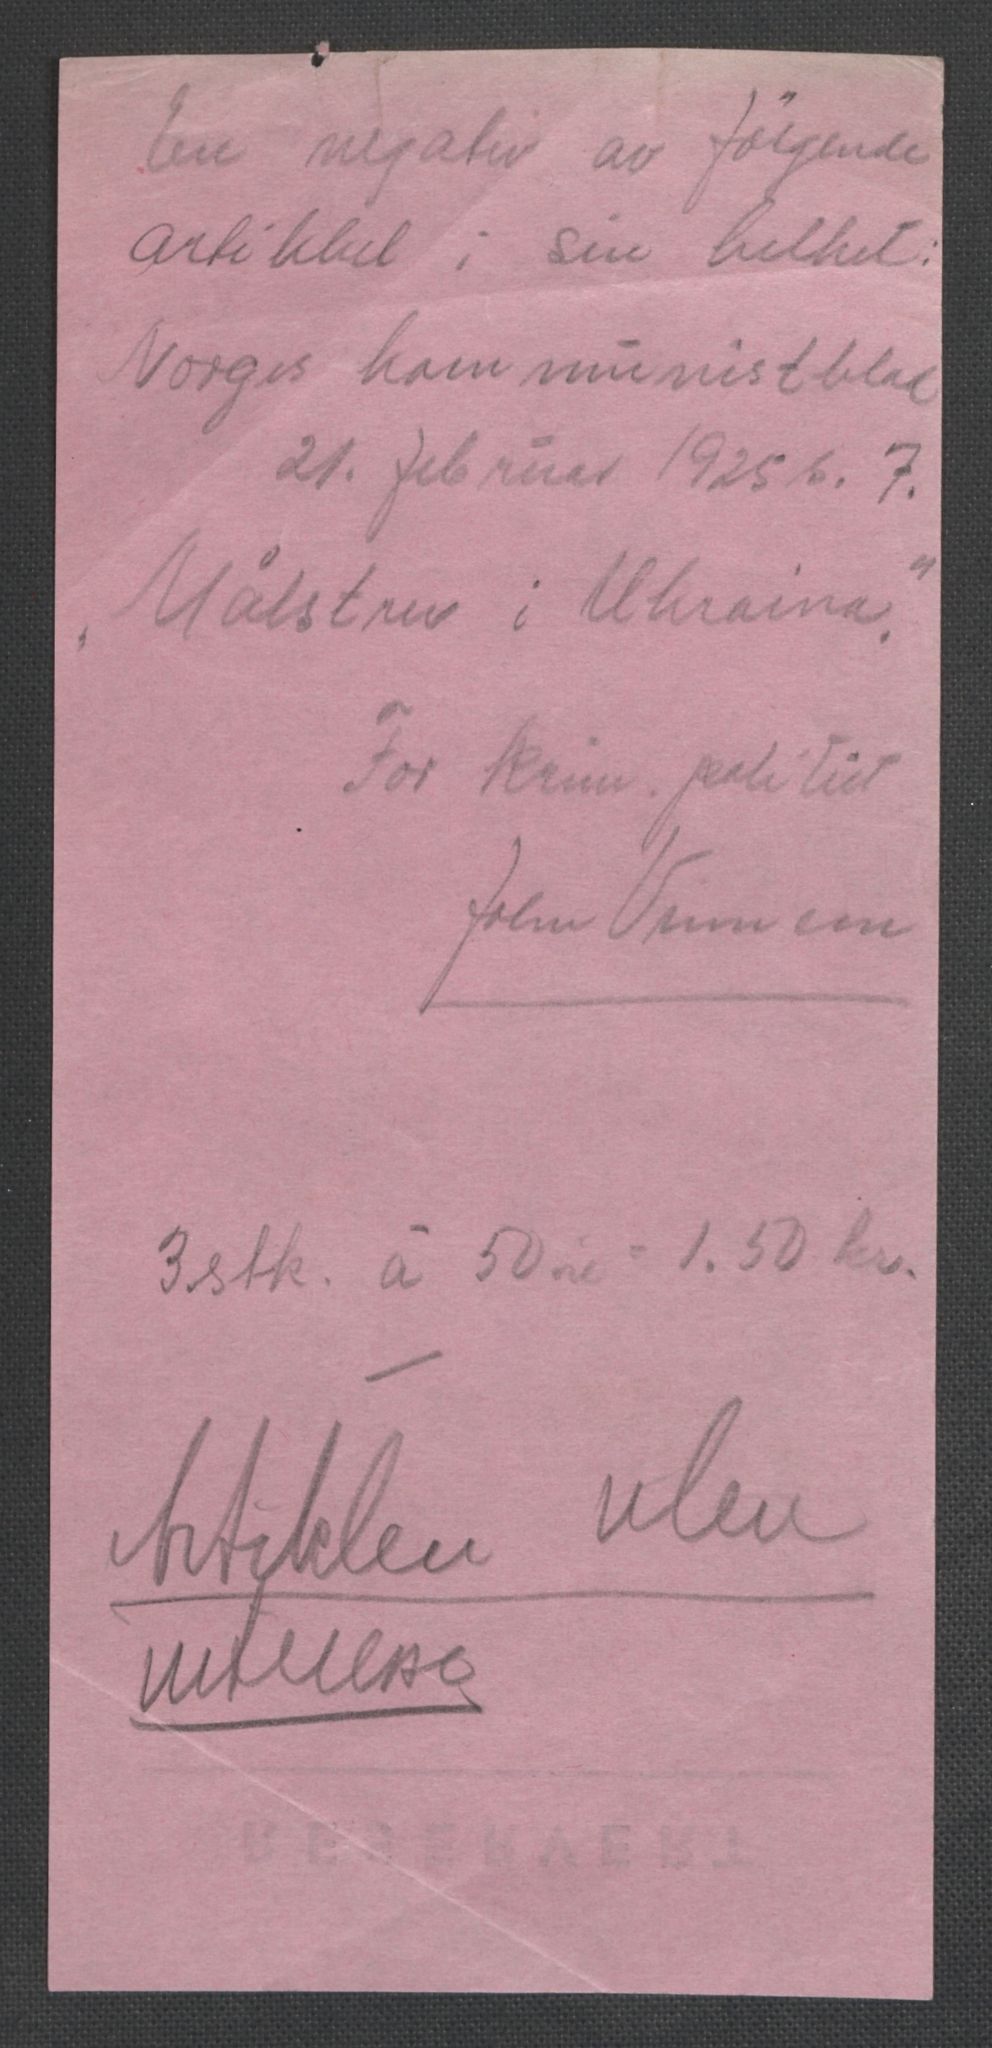 En negativ av følgende
artikkel i sin helhet:
Norges kommunistblad
21. februar 1925 s. 7.
„Målstrev i Ukraina."
For krim. politiet
John
3 stk. à 50 øre = 1.50 kr.
Artiklen uten
interesse
RESERVERT